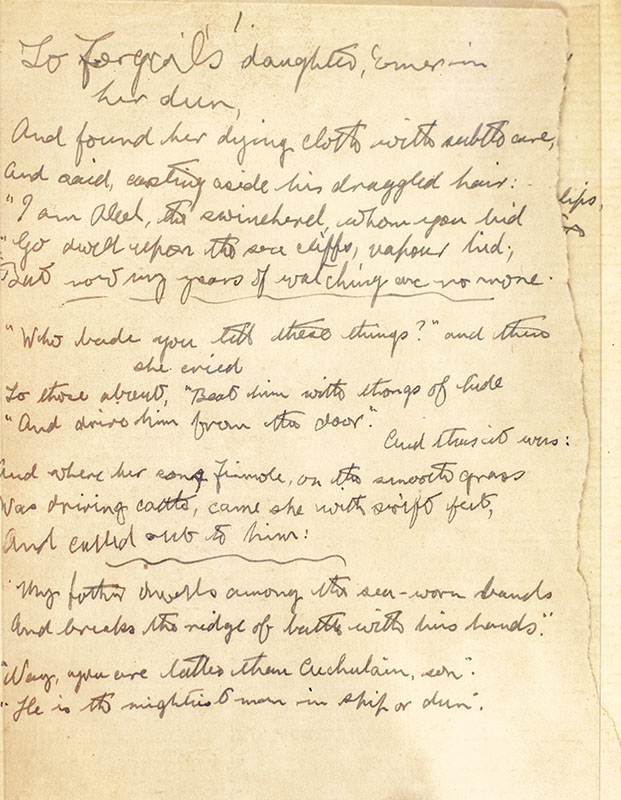 To Forgail's daughter, Emer in
her dun,
And found her dying cloth with subtle care,
And said, casting aside his draggled hair:
"I am Aleel, the swineherd, whom you bid
"Go dwell upon the sea cliffs, vapour hid;
But now my years of watching are no more.
lips,
"Who bade you tell these things?" and then
she cried
To those about, "Beat him with thongs of hide
"And drive him from the door."
And thus it was:
And where her son, Finmole, on the smooth grass
Was driving cattle, came she with swift feet,
And called out to him:
"My father dwells among the sea-worn bands
And breaks the ridge of battle with his hands."
"Nay, you are taller than Cuchulain, son".
"He is the mightiest man in ship or dun".